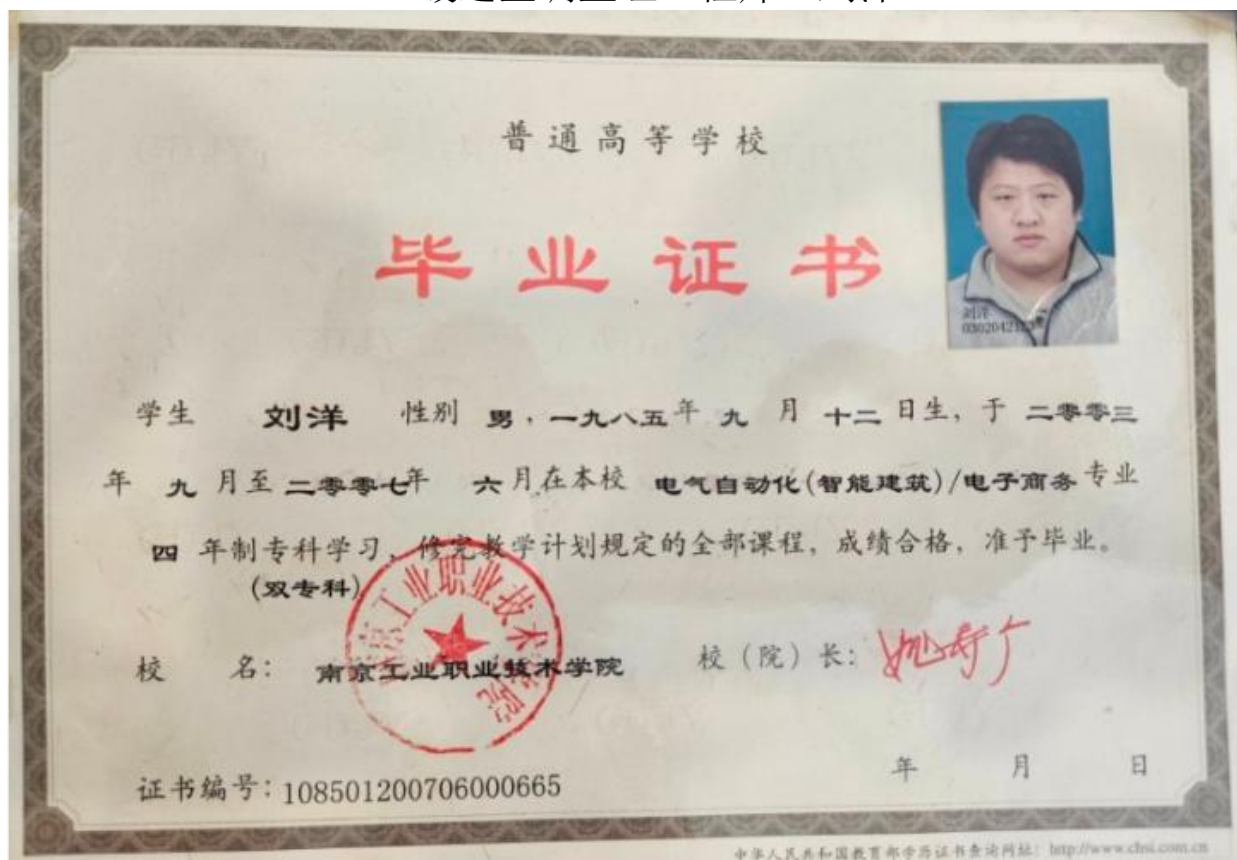 普通高等学校
毕业证书
刘洋
学生 刘洋 性别 男，一九八五年 九 月 十二 日生，于 二零零三
年 九 月至 二零零七年 六 月在本校 电气自动化(智能建筑)/电子商务 专业
四 年制专科学习，修完教学计划规定的全部课程，成绩合格，准予毕业。
(双专科)
南京工业职业技术学院
校 名： 南京工业职业技术学院 校（院）长：姚寿广
年 月 日
证书编号：108501200706000665
中华人民共和国教育部学历证书查询网址：http://www.chsi.com.cn